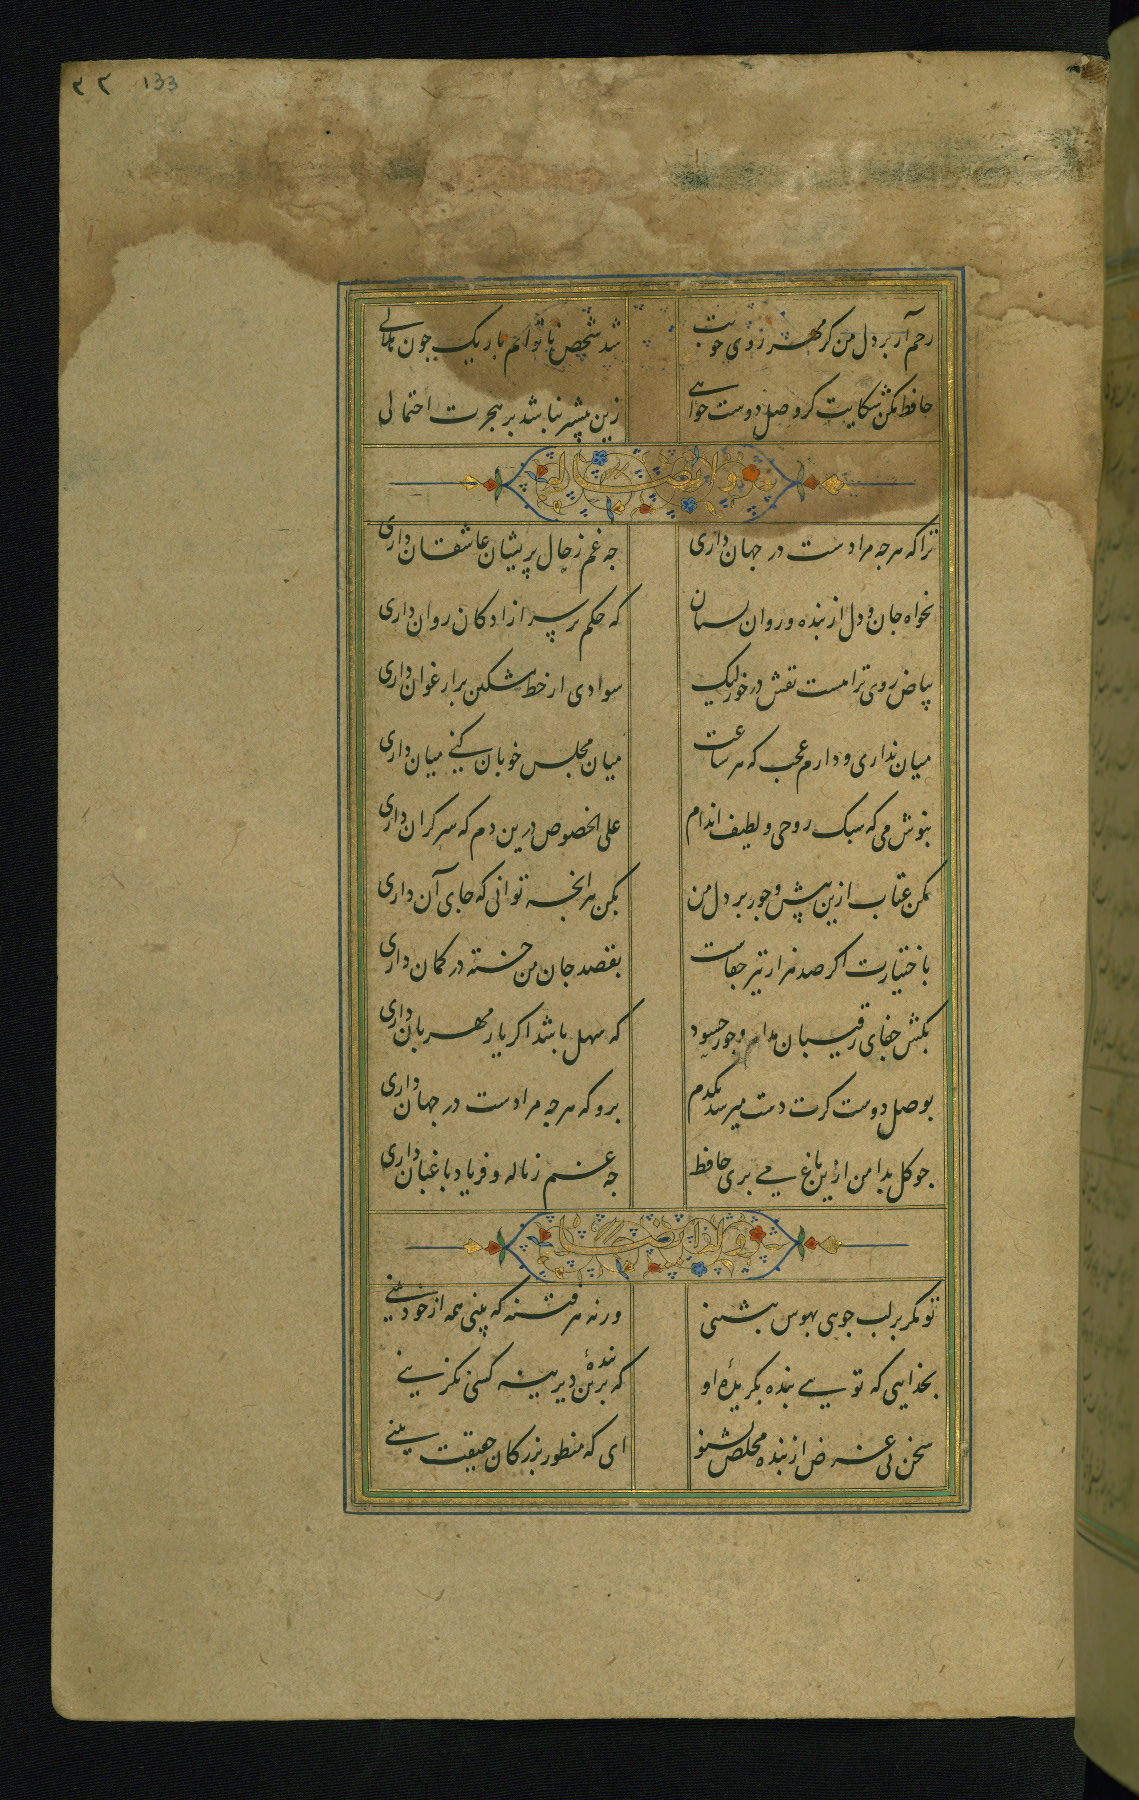 ۳۲ 133
رحم آر بر دل من کز مهر روی خوبت شد شخص ناتوانم باریک چون هلالی
حافظ مکن شکایت کر وصل دوست خواهی زین بیشتر نباشد بر هجرت احتمالی
وله ایضا
ترا که هرجه مرادست در جهان داری جه غم ز حال پریشان عاشقان داری
بخواه جان و دل از بنده و روان بستان که حکم بر سر ازادکان روان داری
بیاض روی ترا نیست نقش در خور لیک سوادی از خط مشکین بر ارغوان داری
میان نداری و دارم عجب که هر ساعت میان مجلس خوبان کنی میان داری
بنوش می که سبک روحی و لطیف اندام علی الخصوص درین دم که سرکران داری
مکن عتاب ازین بیش و جور بر دل من بکن هر انجه توانی که جای آن داری
باختیارت اکر صد هزار تیر جفاست بقصد جان من خسته در کمان داری
بکش جفای رقیبان مدام و جور حسود که سهل باشد اکر یار مهربان داری
بوصل دوست کرت دست میرسد یکدم برو که هرجه مرادست در جهان داری
جو کل بدامن ازین باغ می بری حافظ جه غم ز ناله و فریاد باغبان داری
وله ایضا
تو مکر بر لب جوی بهوس بنشینی ورنه هر فتنه که بینی همه از خود بینی
بخدایی که تویی بنده بکزیدهٔ او که برین بندهٔ دیرینه کسی نکزینی
سخن بی غرض از بنده مخلص بشنو ای که منظور بزرکان حقیقت بینی